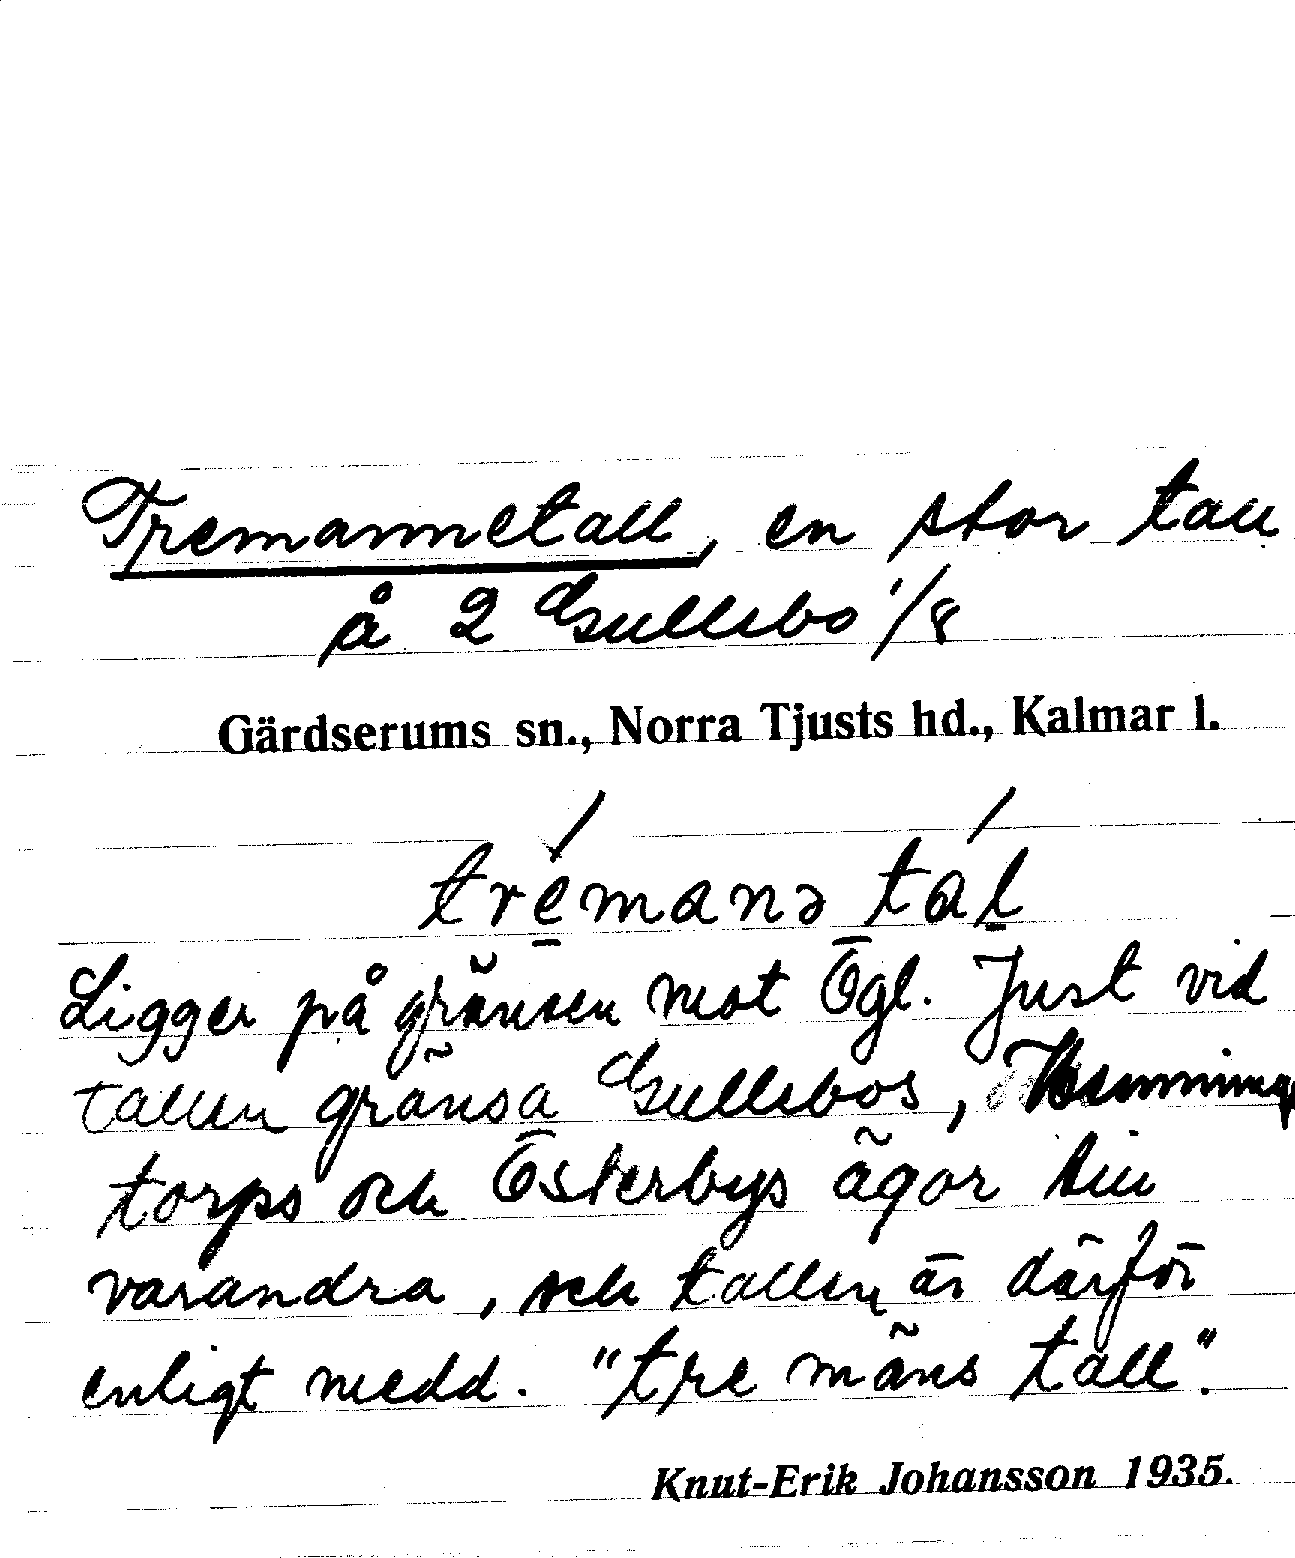 Tremannetall, en stor tall
å 2 Gullebo 1/8
Gärdserums sn., Norra Tjusts hd., Kalmar l.
trémanə tál
Ligger på gränsen mot Ögl. Just vid
tallen gränsa Gullebos,
torps och Österbys ägor till
varandra, och tallen är därför
enligt medd. "tre mäns tall".
Knut-Erik Johansson 1935.